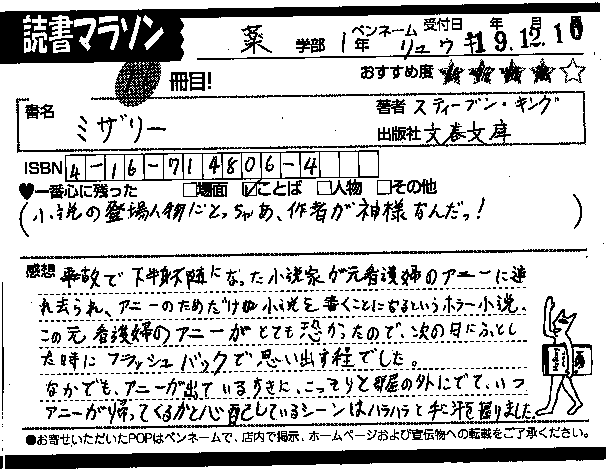 読書マラソン
薬 学部 1年 ペンネーム リュウキ 受付日 19.12.10 年 月
冊目! おすすめ度 ★★★★☆
書名 ミザリー
著者 スティーブン・キング
出版社 文春文庫
ISBN 4-16-714806-4
♥一番心に残った □場面 ☑ことば □人物 □その他
(小説の登場人物にとっちゃあ、作者が神様なんだっ!)
感想 事故で下半身不随になった小説家が元看護婦のアニーに連
れ去られ、アニーのためだけの小説を書くことになるというホラー小説。
この元看護婦のアニーがとても恐かったので、次の日にふとし
た時にフラッシュバックで思い出す程でした。
なかでも、アニーが出ているすきに、こっそりと部屋の外にでて、いつ
アニーが帰ってくるかと心配しているシーンはハラハラと手に汗を握りました。
●お寄せいただいたPOPはペンネームで、店内で掲示、ホームページおよび宣伝物への転載をご了承ください。